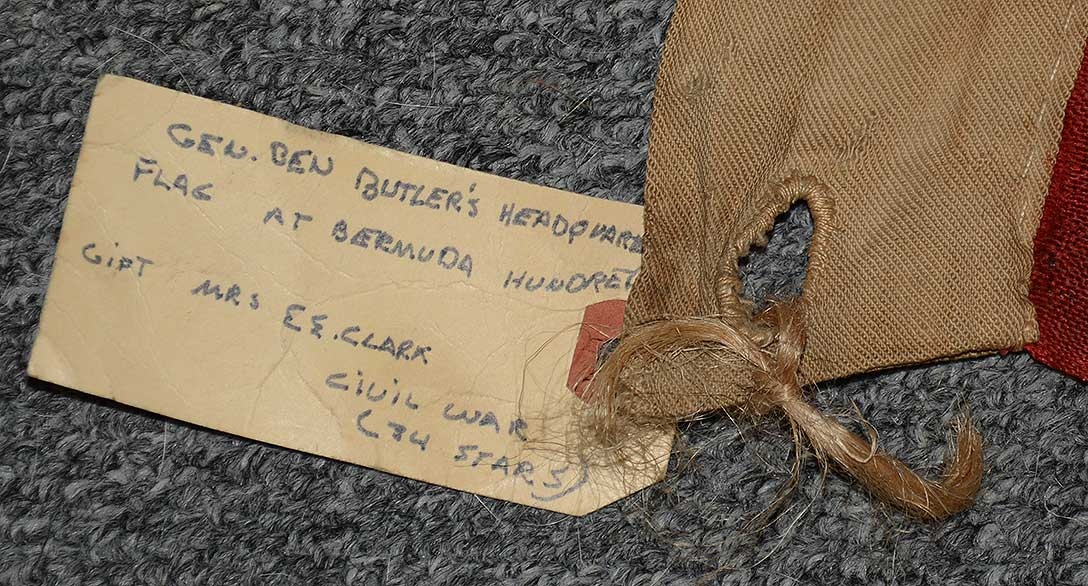 GEN. BEN BUTLER'S HEADQUAR
FLAG AT BERMUDA HUNDRE
GIFT MRS E.E. CLARK
CIVIL WAR
(34 STARS)